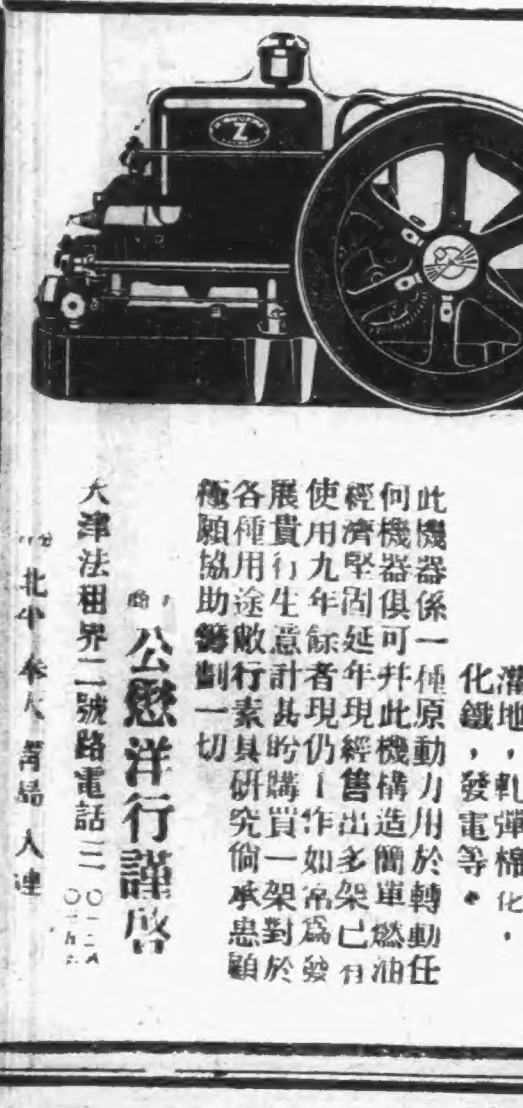 Z
灌地，軋彈棉花，
化鐵，發電等。
此機器係一種原動力用於轉動任
何機器俱可幷此機構造簡單燃油
經濟堅固延年現經售出多架已有
使用九年餘者現仍工作如常爲發
展貴行生意計甚盼購買一架對於
各種用途敝行素具研究倘承惠顧
極願協助籌劃一切
商 公懋洋行謹啓
天津法租界二號路電話三
北平 奉天 靑島 大連